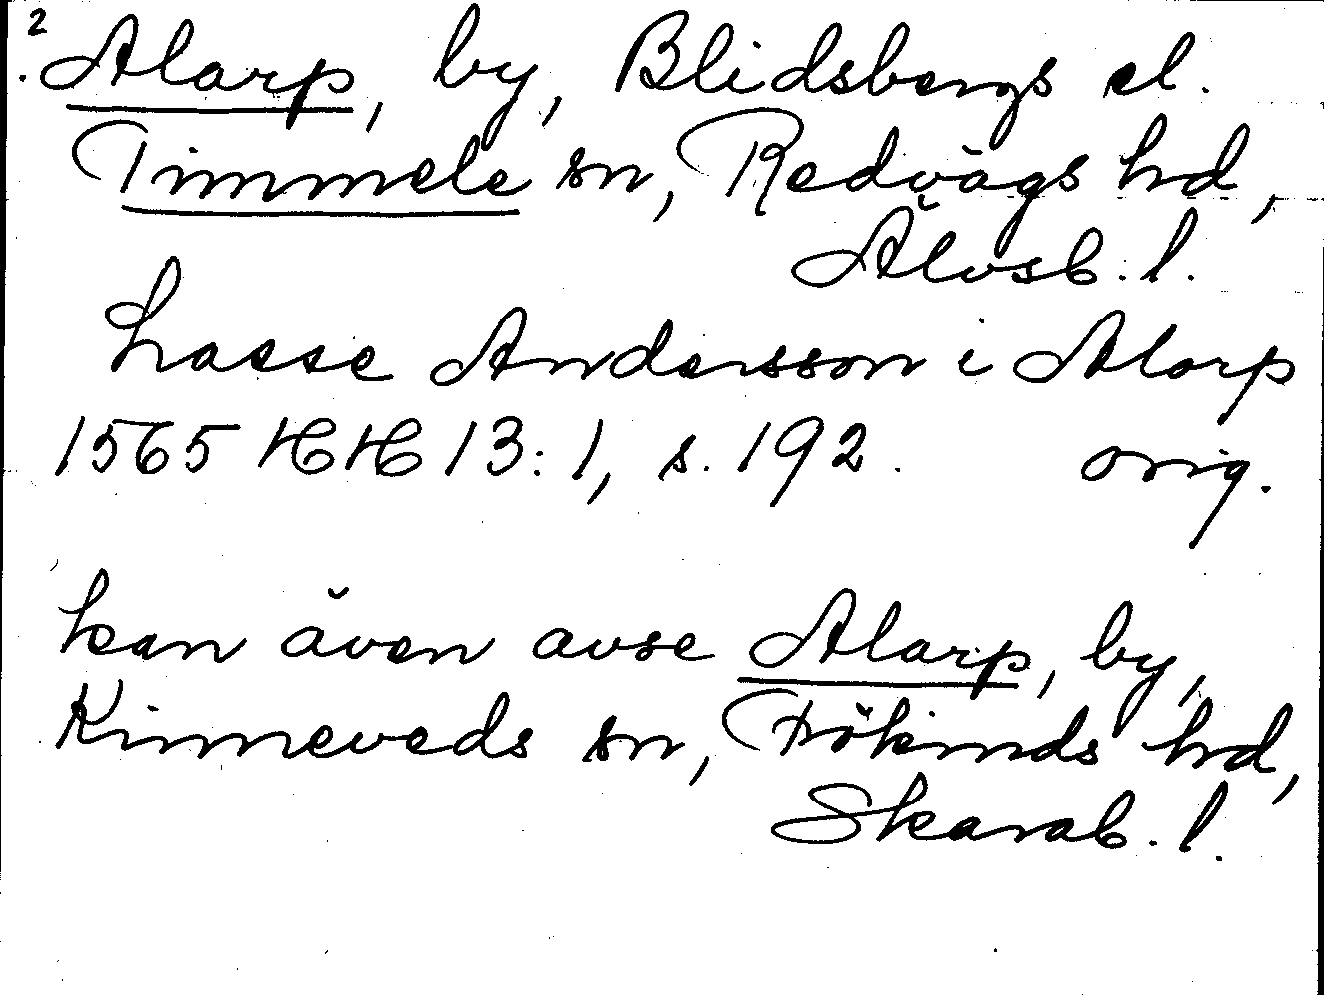 2
Alarp, by, Blidsbergs el.
Timmele sn, Redvägs hd,
Älvsb. l.
Lasse Andersson i Alarp
1565 HH 13:1, s. 192. orig.
kan även avse Alarp, by,
Kinneveds sn, Frökinds hd,
Skarab. l.